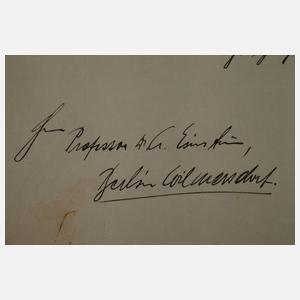 Herrn
Professor Dr A. Einstein,
Berlin Wilmersdorf.